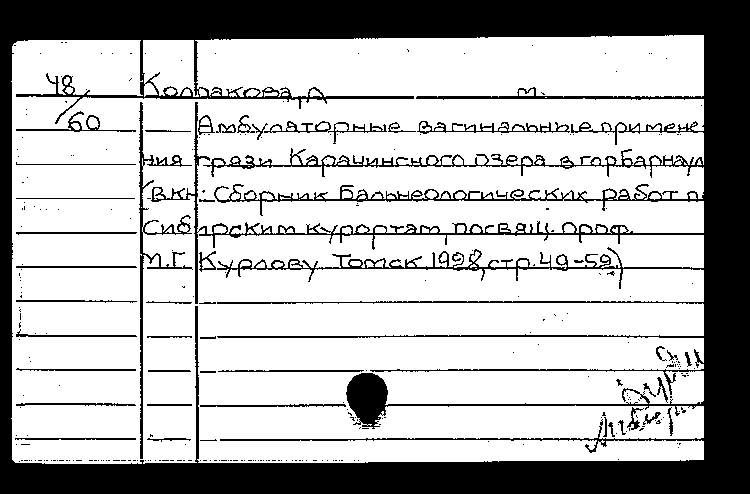 48
/60
Колпакова, А м.
Амбулаторные вагинальные примене
ния грязи Карачинского озера в гор Барнаул
(В кн: Сборник бальнеологических работ по
Сибирским курортам, посвящ. проф.
М.Г. Курлову. Томск. 1928, стр. 49-59)